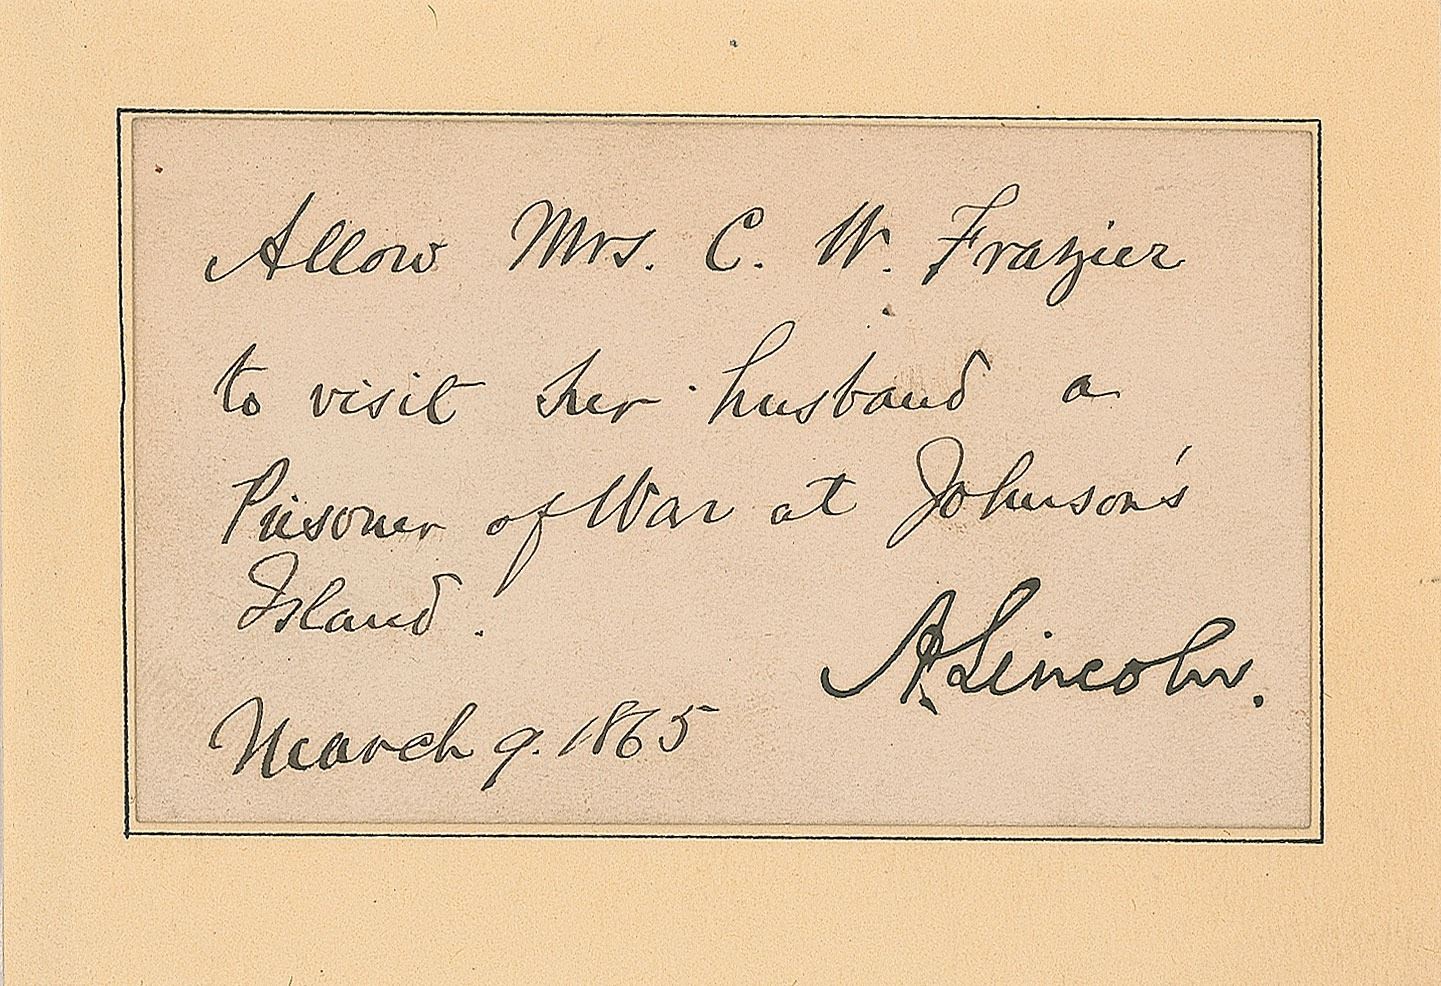 Allow Mrs. C. W. Frazier
to visit her husband a
Prisoner of War at Johnson's
Island.
A. Lincoln.
March 9. 1865